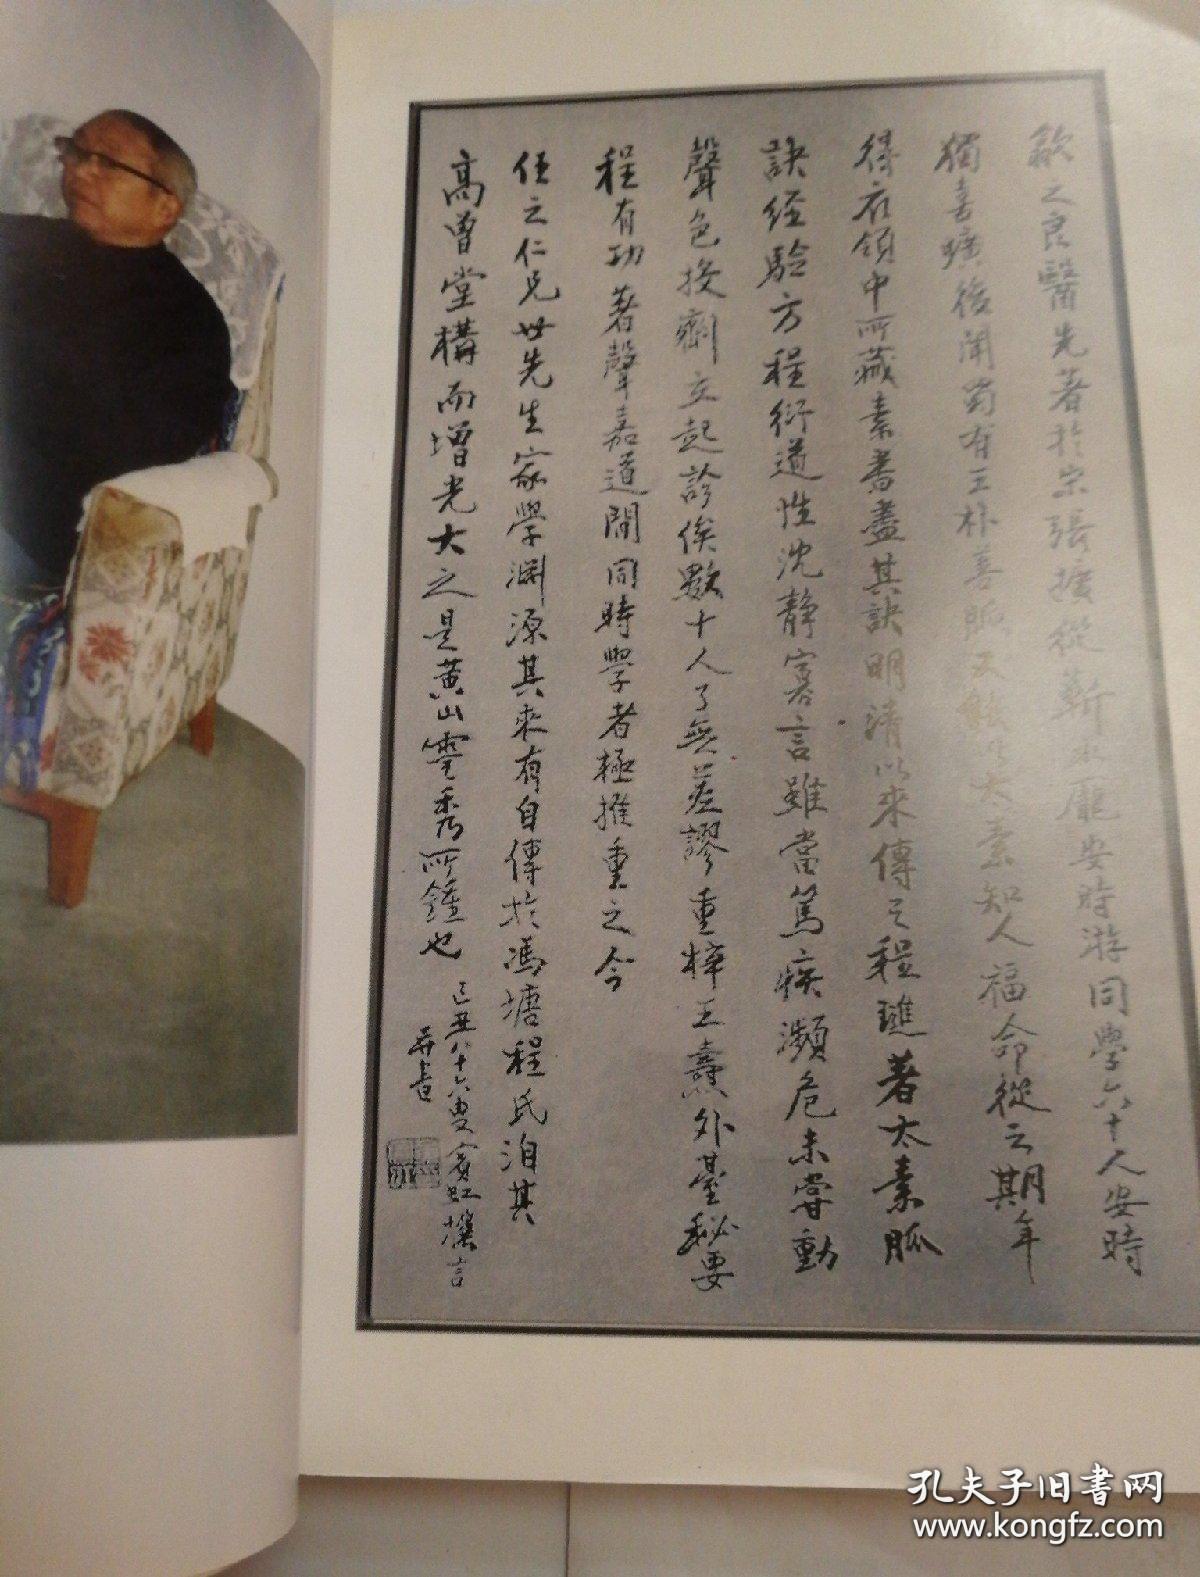 歙之良醫先著於宋張擴從蘄水龐安時游同學六十人安時
獨喜擴後聞蜀有王朴善脈又能以太素知人福命從之期年
得衣領中所藏素書盡其訣明清以來傳之程璡著太素脈
訣經驗方程衍道性沈靜寡言雖當篤疾瀕危未嘗動
聲色投劑立起診候數十人了無差謬重梓王燾外臺秘要
程有功著聲嘉道間同時學者極推重之今
任之仁兄世先生家學淵源其來有自傳於馮塘程氏洎其
高曾堂構而增光大之是黃山靈秀所鍾也
己丑八十六叟賓虹撰言
并書
孔夫子旧书网
www.kongfz.com